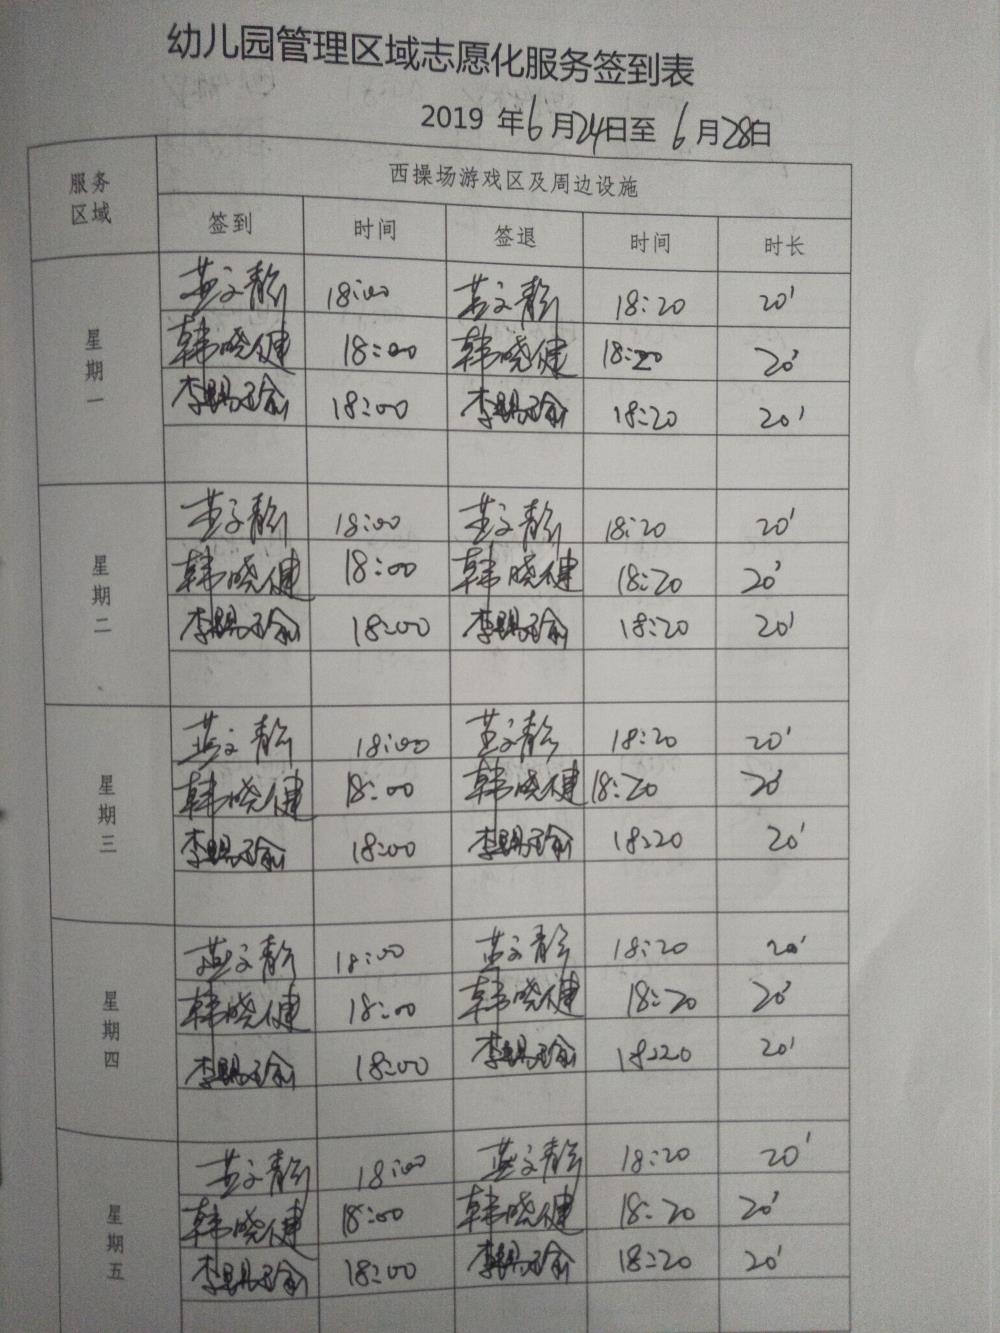 幼儿园管理区域志愿化服务签到表
2019 年6月24日至 6月28日
服务区域 西操场游戏区及周边设施
签到 时间 签退 时间 时长
星期一
文静 18:00 文静 18:20 20'
韩晓健 18:00 韩晓健 18:20 20'
李赐瑜 18:00 李赐瑜 18:20 20'
星期二
文静 18:00 文静 18:20 20'
韩晓健 18:00 韩晓健 18:20 20'
李赐瑜 18:00 李赐瑜 18:20 20'
星期三
文静 18:00 文静 18:20 20'
韩晓健 18:00 韩晓健 18:20 20'
李赐瑜 18:00 李赐瑜 18:20 20'
星期四
文静 18:00 文静 18:20 20'
韩晓健 18:00 韩晓健 18:20 20'
李赐瑜 18:00 李赐瑜 18:20 20'
星期五
文静 18:00 文静 18:20 20'
韩晓健 18:00 韩晓健 18:20 20'
李赐瑜 18:00 李赐瑜 18:20 20'